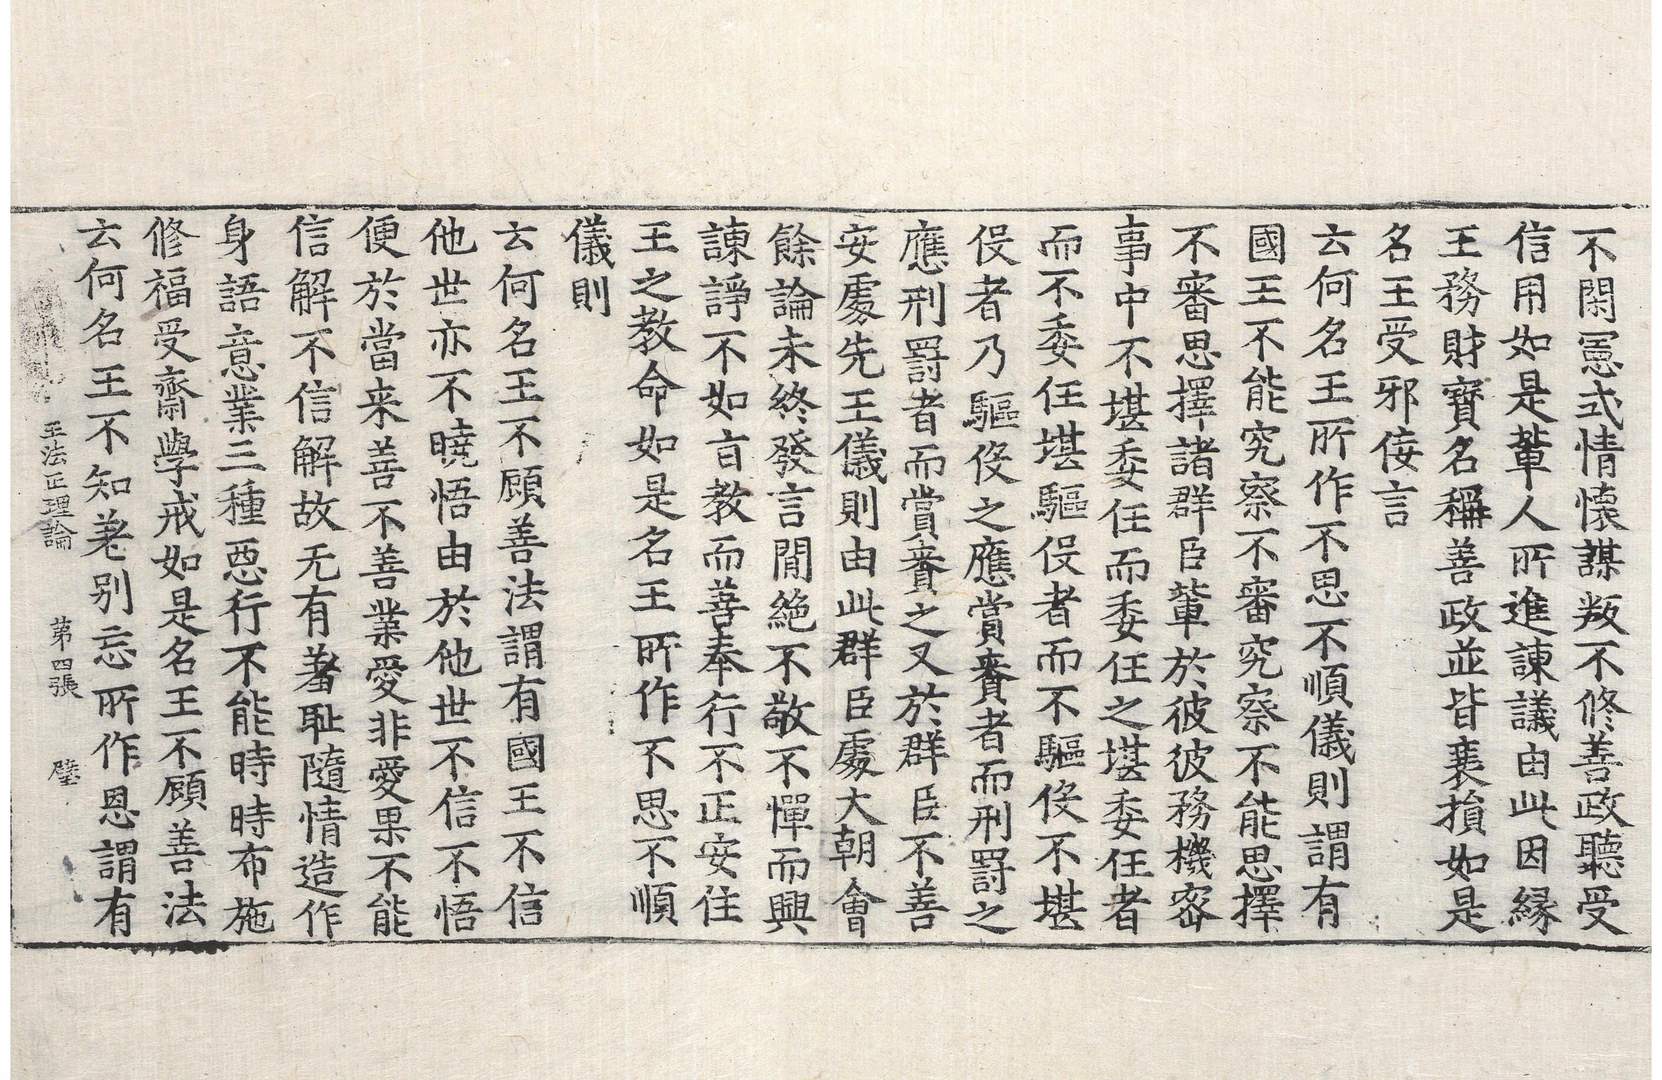 不閑憲式情懷謀叛不修善政聽受
信用如是軰人所進諫議由此因縁
王務財寶名稱善政並皆衰損如是
名王受邪侫言
云何名王所作不思不順儀則謂有
國王不能究察不審究察不能思擇
不審思擇諸群臣軰於彼彼務機密
事中不堪委任而委任之堪委任者
而不委任堪驅役者而不驅役不堪
役者乃驅役之應賞賚者而刑罸之
應刑罸者而賞賚之又於群臣不善
安處先王儀則由此群臣處大朝會
餘論未終發言間絶不敬不憚而興
諫諍不如言教而善奉行不正安住
王之教命如是名王所作不思不順
儀則
云何名王不顧善法謂有國王不信
他世亦不曉悟由於他世不信不悟
便於當来善不善業愛非愛果不能
信解不信解故无有羞耻隨情造作
身語意業三種惡行不能時時布施
修福受齋學戒如是名王不顧善法
云何名王不知差別忘所作恩謂有
王法正理論 第四張 壁